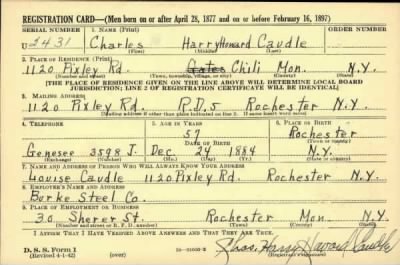 REGISTRATION CARD—(Men born on or after April 28, 1877 and on or before February 16, 1897)
SERIAL NUMBER 1. NAME (Print) ORDER NUMBER
U 2431 Charles Harry Howard Caudle
(First) (Middle) (Last)
2. PLACE OF RESIDENCE (Print)
1120 Pixley Rd. Gates Chili Mon. N.Y.
(Number and street) (Town, township, village, or city) (County) (State)
[THE PLACE OF RESIDENCE GIVEN ON THE LINE ABOVE WILL DETERMINE LOCAL BOARD
JURISDICTION; LINE 2 OF REGISTRATION CERTIFICATE WILL BE IDENTICAL]
3. MAILING ADDRESS
1120 Pixley Rd. R.D.5 Rochester N.Y.
[Mailing address if other than place indicated on line 2. If same insert word same]
4. TELEPHONE 5. AGE IN YEARS 6. PLACE OF BIRTH
57 Rochester
DATE OF BIRTH (Town or county)
Genesee 3598 J. Dec 24 1884 N.Y.
(Exchange) (Number) (Mo.) (Day) (Yr.) (State or country)
7. NAME AND ADDRESS OF PERSON WHO WILL ALWAYS KNOW YOUR ADDRESS
Louise Caudle 1120 Pixley Rd. Rochester N.Y.
8. EMPLOYER'S NAME AND ADDRESS
Burke Steel Co.
9. PLACE OF EMPLOYMENT OR BUSINESS
30 Sherer St. Rochester Mon. N.Y.
(Number and street or R. F. D. number) (Town) (County) (State)
I AFFIRM THAT I HAVE VERIFIED ABOVE ANSWERS AND THAT THEY ARE TRUE.
D. S. S. Form 1
(Revised 4-1-42) (over) Chas. Harry Howard Caudle
(Registrant's signature)